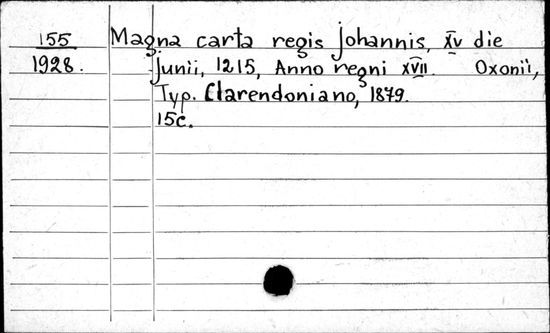 155 Magna carta regis Johannis, XV die
1928. Junii, 1215, Anno regni XVII. Oxonii,
Typ. Clarendoniano, 1879.
15c.